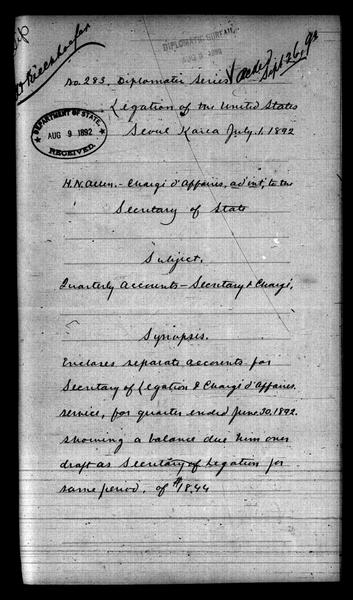 DIPLOMATIC BUREAU,
ackd Sept 26, 92
No. 283. Diplomatic Series
Legation of the United States
Seoul Korea July 1, 1892
DEPARTMENT OF STATE,
AUG 9 1892
RECEIVED.
H. N. Allen. - Chargé d'Affaires, ad int, to the
Secretary of State
Subject.
Quarterly Accounts - Secretary & Chargé,
Synopsis.
Encloses separate accounts for
Secretary of Legation & Chargé d'Affaires
service, for quarter ended June 30, 1892.
showing a balance due him over
draft as Secretary of Legation for
same period, of $18.44